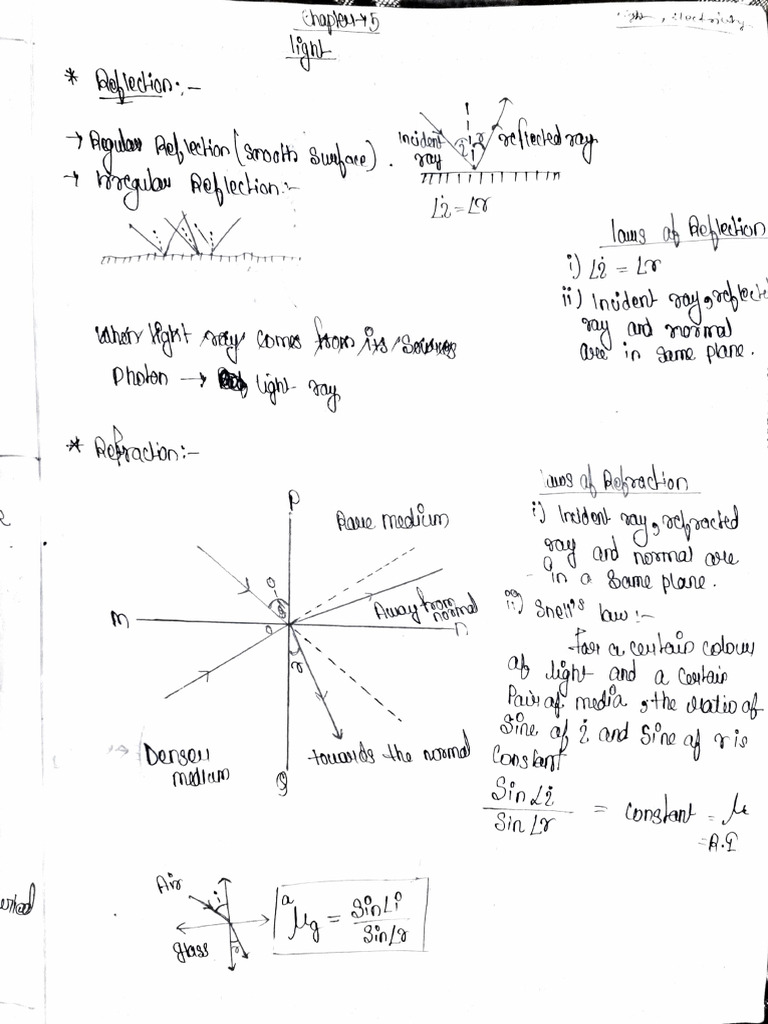 Chapter→5
light, Electricity
light
* Reflection:-
→ Regular Reflection (Smooth Surface).
→ Irregular Reflection:-
incident
ray
i
r
reflected ray
∠i = ∠r
laws of Reflection
i) ∠i = ∠r
ii) Incident ray, reflected
ray and normal
are in same plane.
When light ray comes from its sources
Photon → light ray
* Refraction:-
P
Rare medium
Away from
normal
M
n
o
r
Denser
medium
towards the normal
Q
laws of Refraction
i) Incident ray, refracted
ray and normal are
in a same plane.
ii) Snell's law:-
For a certain colour
of light and a certain
Pair of media, the ratio of
Sine of i and Sine of r is
constant
Sin∠i
Sin∠r
= constant = μ
= R.I
Air
glass
i
r
aμg = Sin∠i
Sin∠r